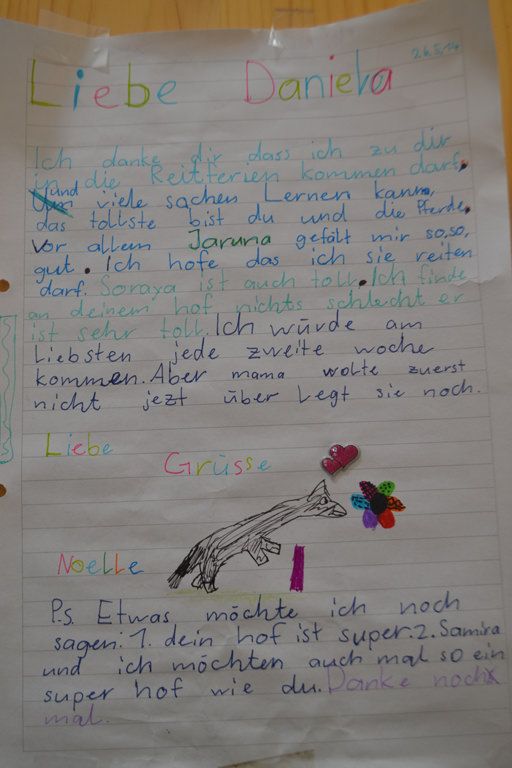 26.5.14
Liebe Daniela
Ich danke dir dass ich zu dir
in die Reitferien kommen darf,
und viele sachen Lernen kann,
das tollste bist du und die Pferde.
Vor allem Jaruna gefält mir so, so,
gut. Ich hofe das ich sie reiten
darf. Soraya ist auch toll. Ich finde
an deinem hof nichts schlecht er
ist sehr toll. Ich würde am
Liebsten jede zweite woche
kommen. Aber mama wolte zuerst
nicht jezt über Legt sie noch.
Liebe
Grüsse
Noelle
P.s. Etwas möchte ich noch
sagen: 1. dein hof ist super. 2. Samira
und ich möchten auch mal so ein
super hof wie du. Danke noch
mal.